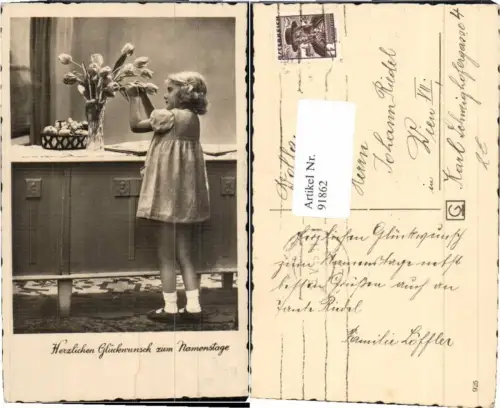 Herzlichen Glückwunsch zum Namenstage
Artikel Nr.
91862
Herrn
Johann Riedel
Wien VII.
in
Karl Schweighofergasse 4
Herzlichen Glückwunsch
zum Namenstage nebst
besten Grüßen auch an
Tante Riedel
Familie Löffler
G